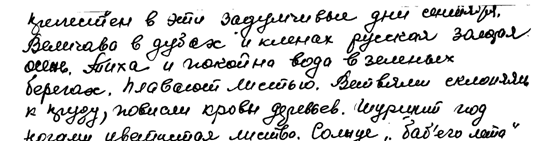 прелестен в эти задумчивые дни сентября.
Величава в дубах и кленах русская золотая
осень. Тиха и покойна вода в зеленых
берегах. Плавают листью. Ветвями склонясь
к пруду, повисли кроны деревьев. Шуршит под
ногами цветистая листва. Солнце „баб'его лета"